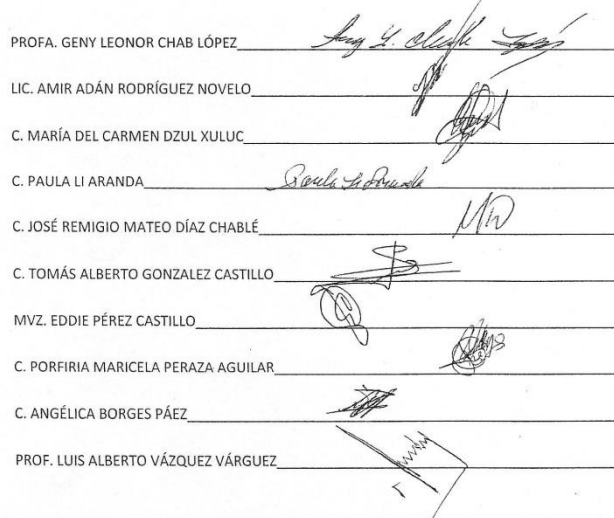 PROFA. GENY LEONOR CHAB LÓPEZ
LIC. AMIR ADÁN RODRÍGUEZ NOVELO
C. MARÍA DEL CARMEN DZUL XULUC
C. PAULA LI ARANDA Paula Li Aranda
C. JOSÉ REMIGIO MATEO DÍAZ CHABLÉ
C. TOMÁS ALBERTO GONZALEZ CASTILLO
MVZ. EDDIE PÉREZ CASTILLO
C. PORFIRIA MARICELA PERAZA AGUILAR
C. ANGÉLICA BORGES PÁEZ
PROF. LUIS ALBERTO VÁZQUEZ VÁRGUEZ